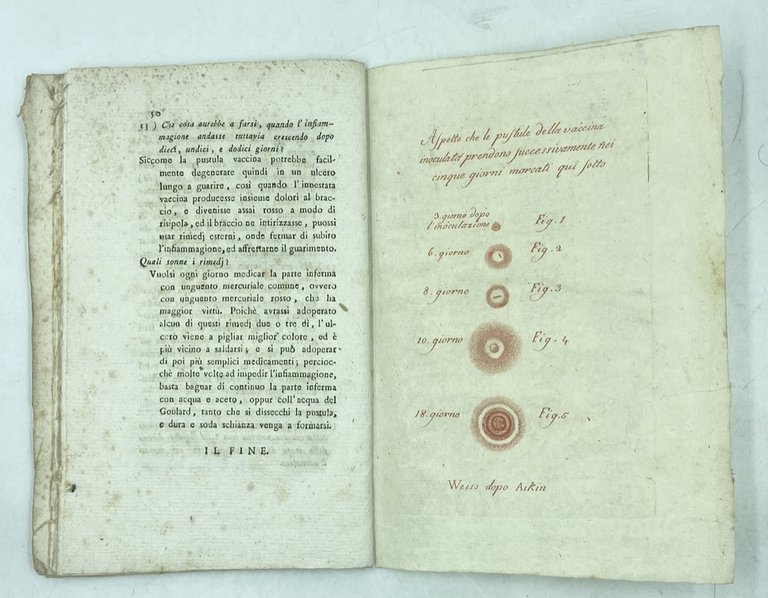 50
53) Che cosa aurebbe a farsi, quando l'infiam-
magione andasse tuttavia crescendo dopo
dieci, undici, e dodici giorni?
Siccome la pustula vaccina potrebbe facil-
mente degenerare quindi in un ulcero
lungo a guarire, così quando l'innestata
vaccina producesse insieme dolori al brac-
cio, e divenisse assai rosso a modo di
risipola, ed il braccio ne intirizzasse, puossi
usar rimedj esterni, onde fermar di subito
l'infiammagione, ed affrettarne il guarimento.
Quali sonne i rimedj?
Vuolsi ogni giorno medicar la parte inferma
con unguento mercuriale comune, ovvero
con unguento mercuriale rosso, che ha
maggior virtù. Poichè avrassi adoperato
alcun di questi rimedj due o tre dì, l'ul-
cero viene a pigliar miglior colore, ed è
più vicino a saldarsi; e si può adoperar
di poi più semplici medicamenti; percioc-
chè molte volte ad impedir l'infiammagione,
basta bagnar di continuo la parte inferma
con acqua e aceto, oppur coll'acqua del
Goulard, tanto che si dissecchi la pustula,
e dura e soda schianza venga a formarsi.
IL FINE.
Aspetto che le pustule della vaccina
inoculata prendono successivamente nei
cinque giorni marcati qui sotto
3. giorno dopo
l'inoculazione Fig. 1
6. giorno Fig. 2
8. giorno Fig. 3
10. giorno Fig. 4
18. giorno Fig. 5
Weiss dopo Aikin